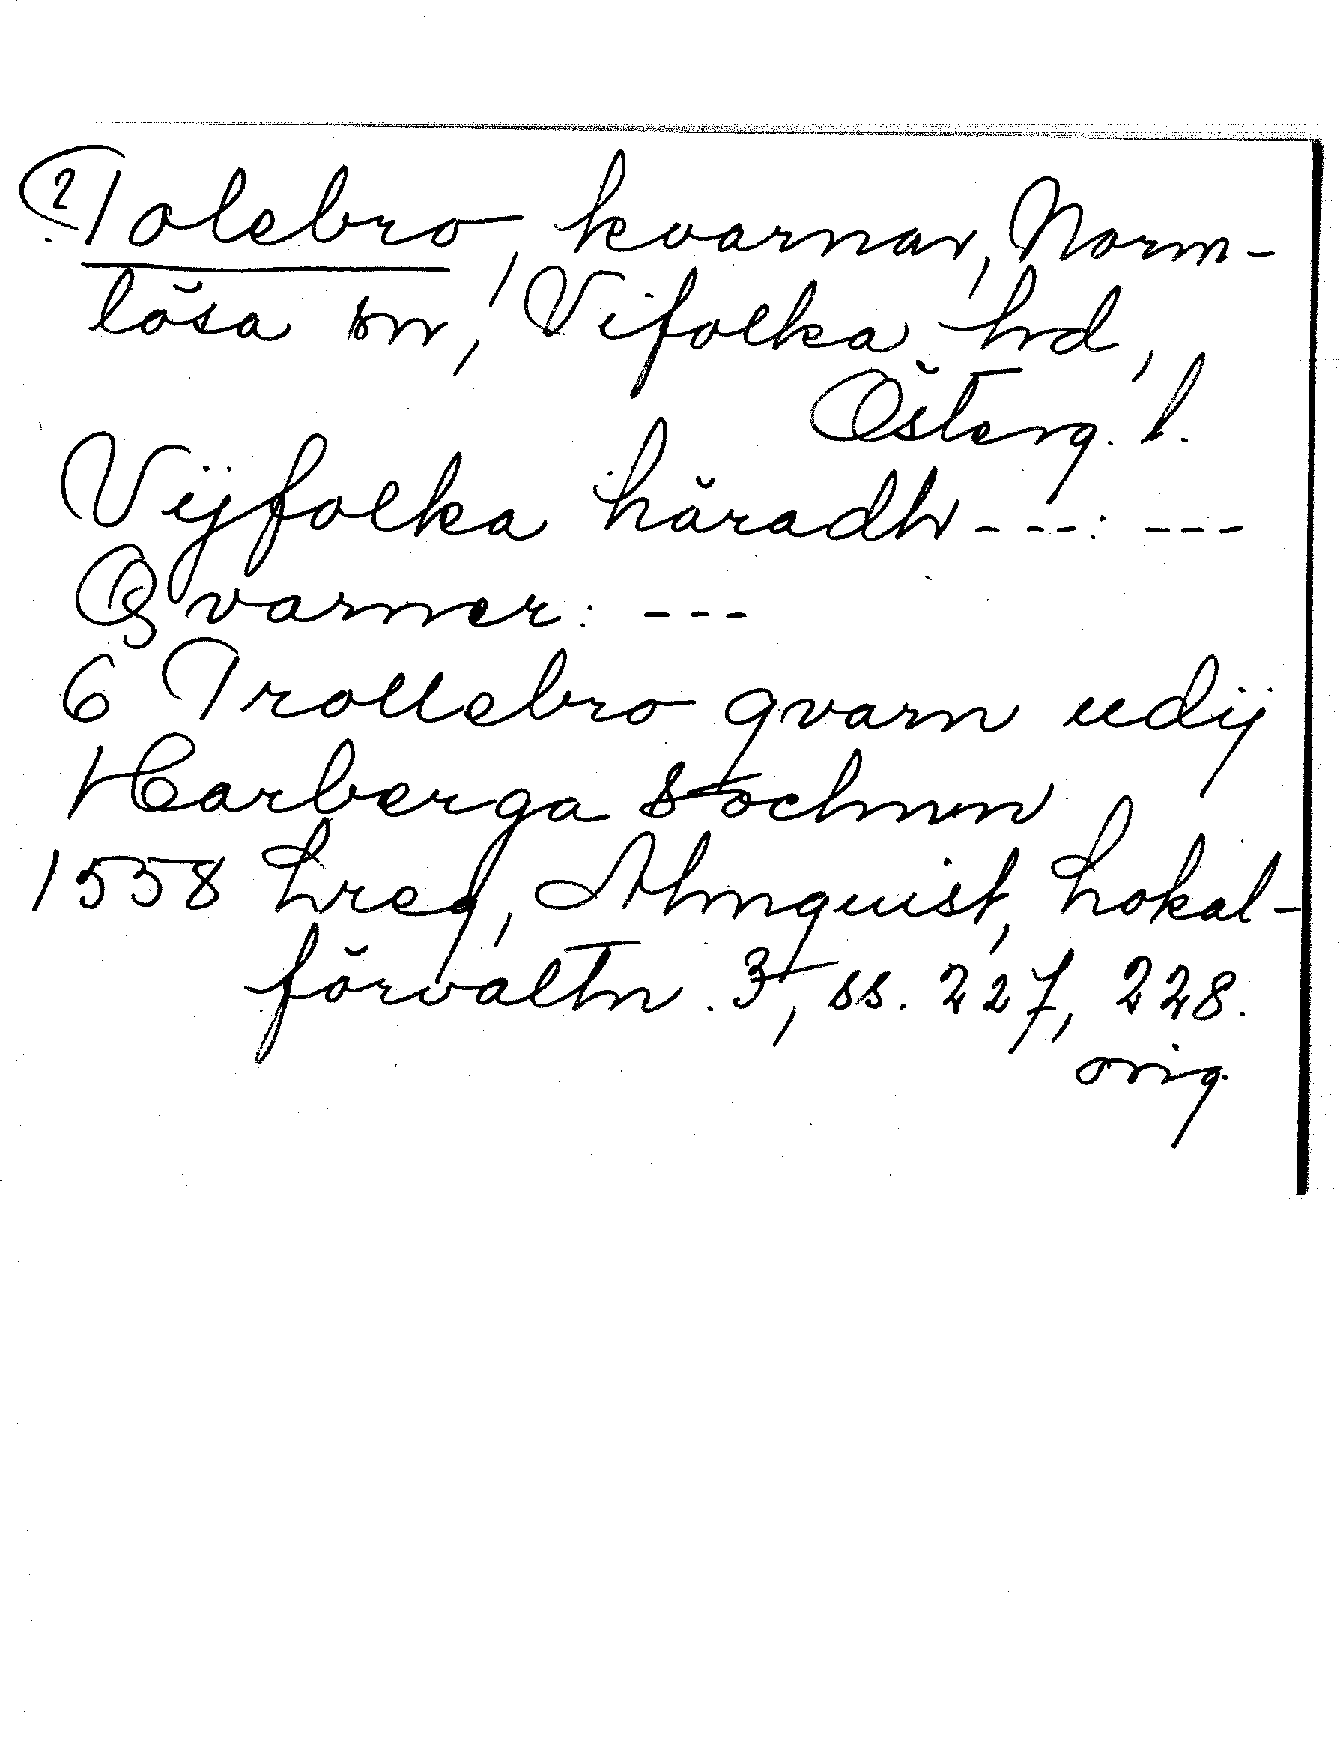 ? Tolebro, kvarnar, Norm-
lösa sn, Vifolka hd,
Österg. l.
Vijfolka häradh - - - : - - -
Qvarner: - - -
6 Trollebro qvarn udij
Harberga sochnnn
1558 Lreg, Almquist, Lokal-
förvaltn. 3, ss. 227, 228.
orig.